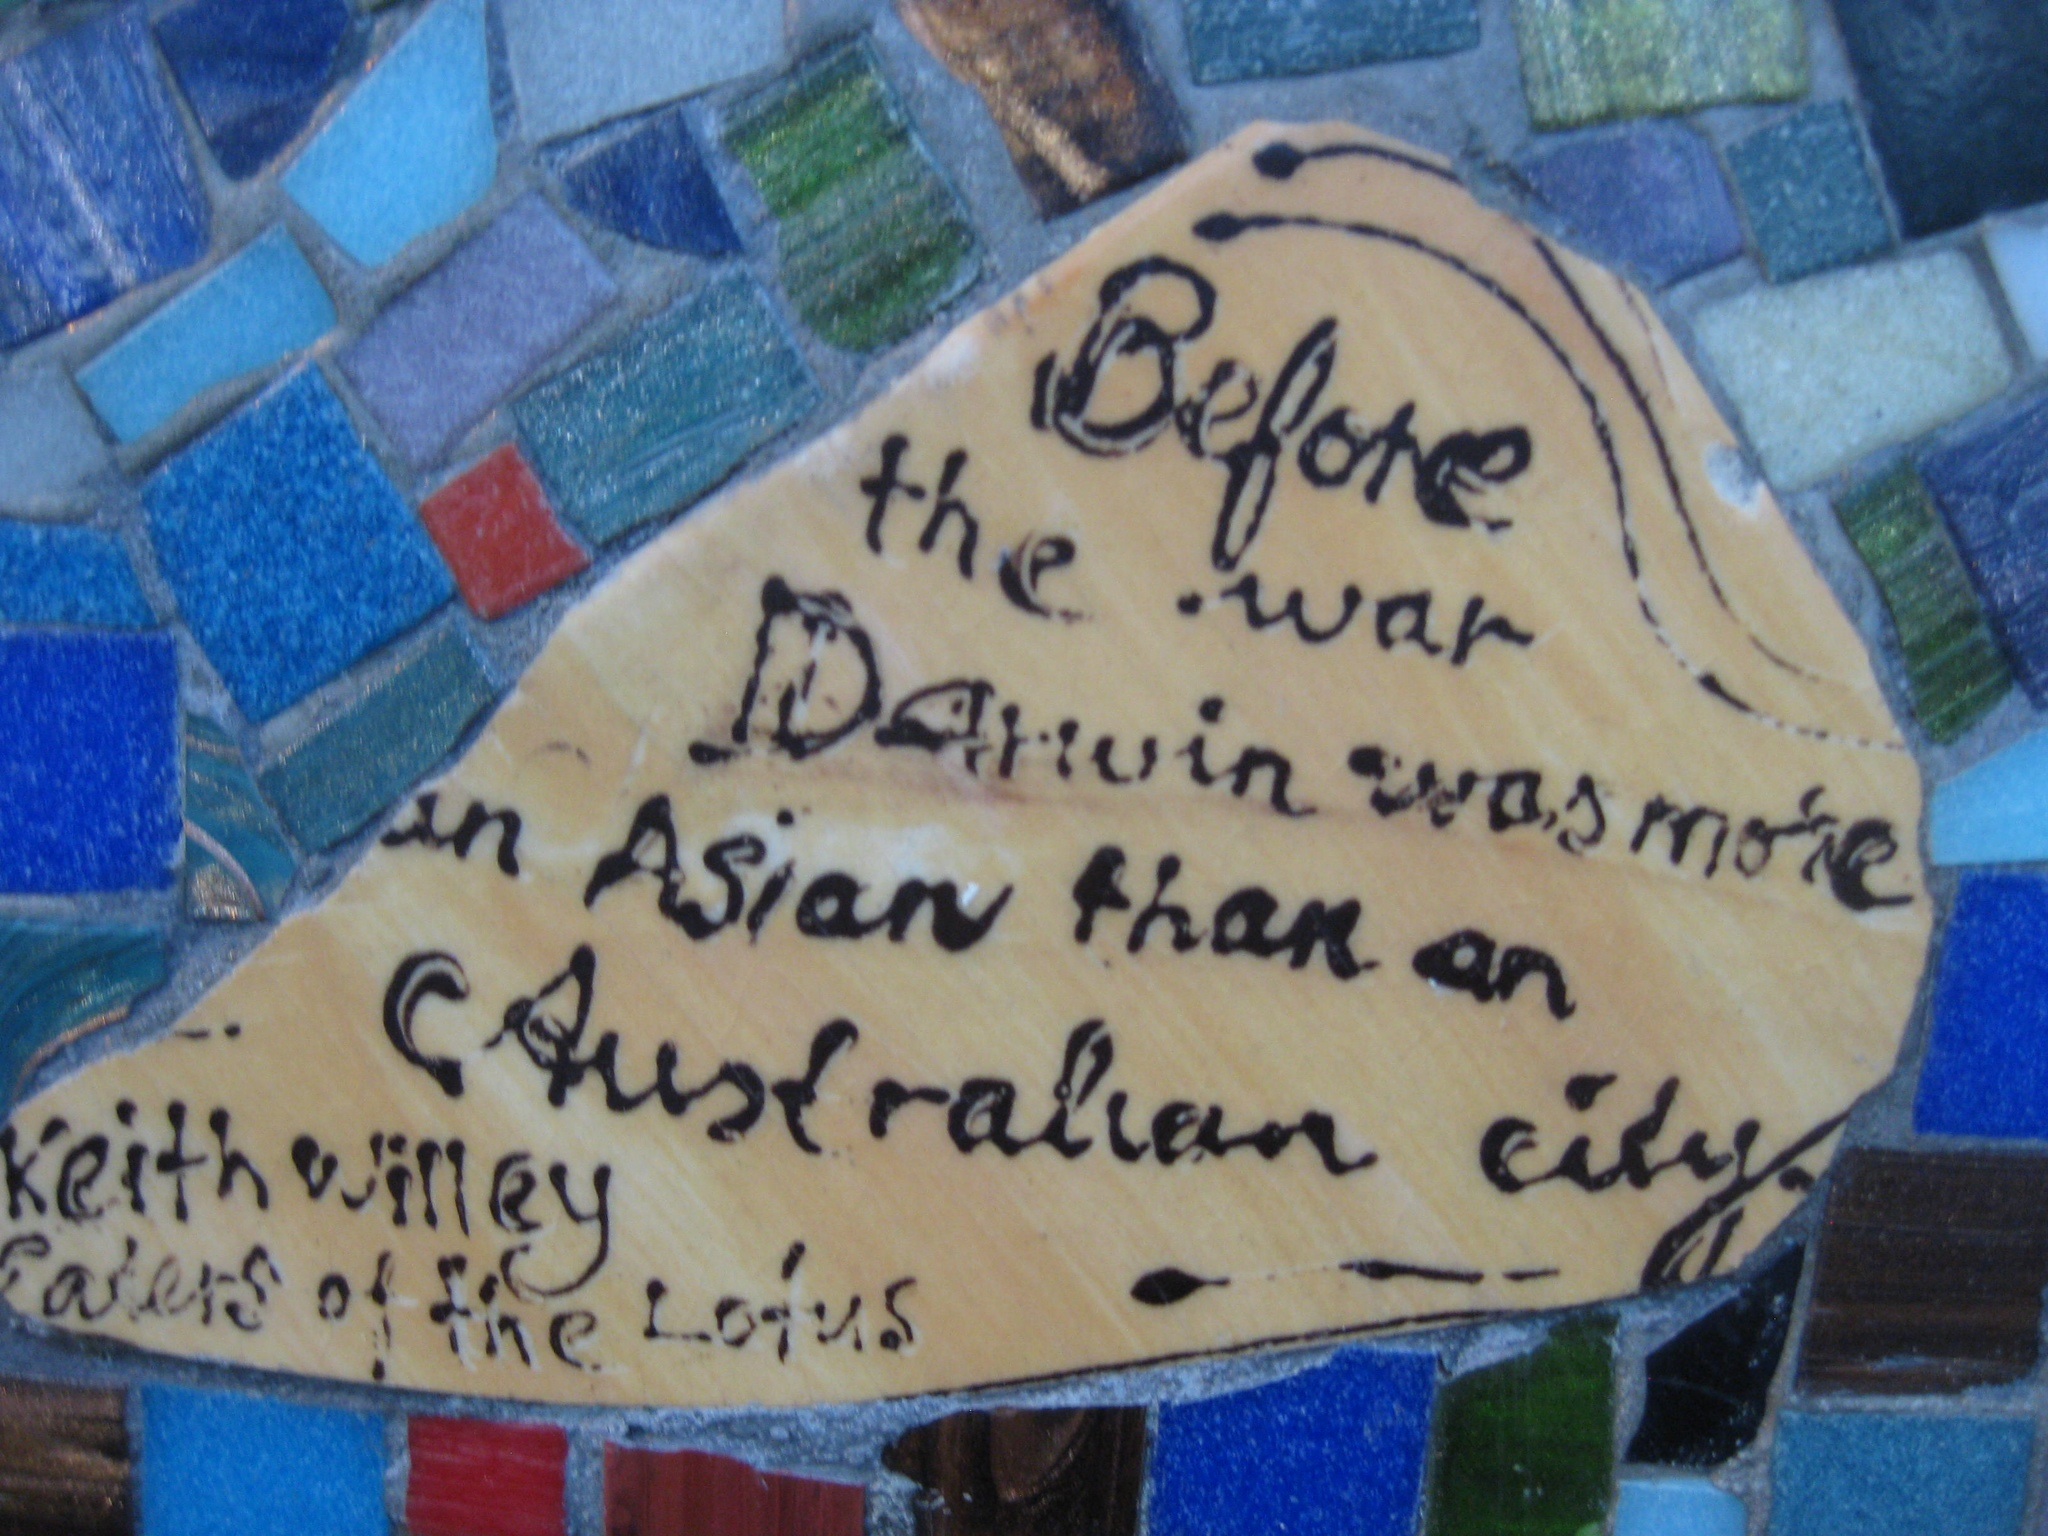 Before
the war
Darwin was more
an Asian than an
Australian city.
Keith Willey
Eaters of the Lotus